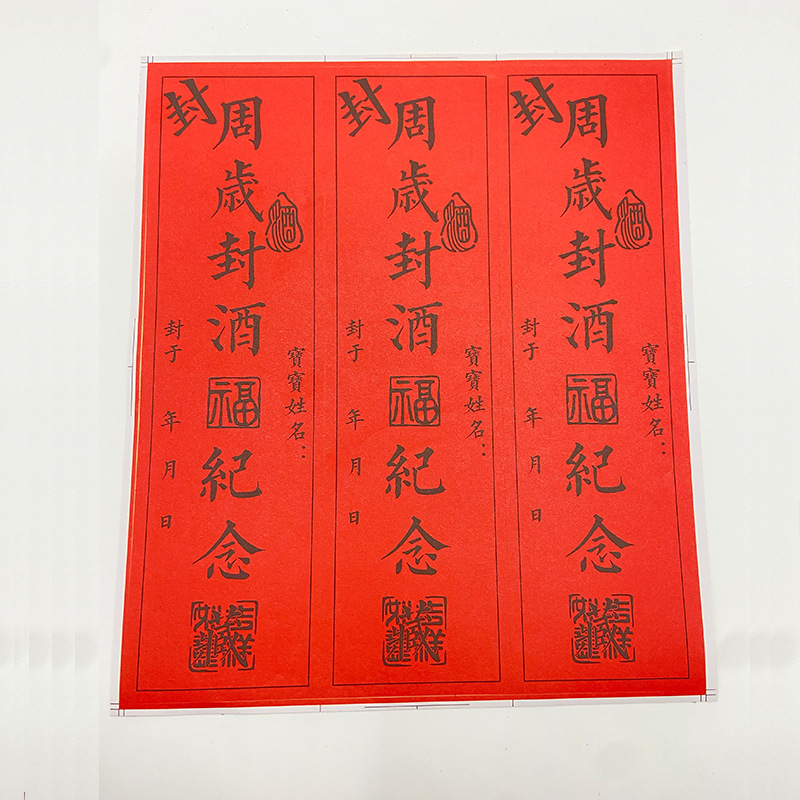 封
周歳封酒福紀念
酒
寶寶姓名：
封于 年 月 日
封
周歳封酒福紀念
酒
寶寶姓名：
封于 年 月 日
封
周歳封酒福紀念
酒
寶寶姓名：
封于 年 月 日